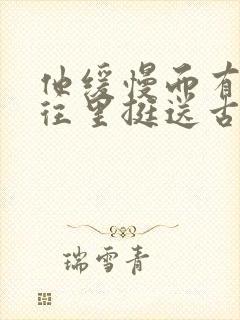 他缓慢而有
往里挺送古
瑞雪青